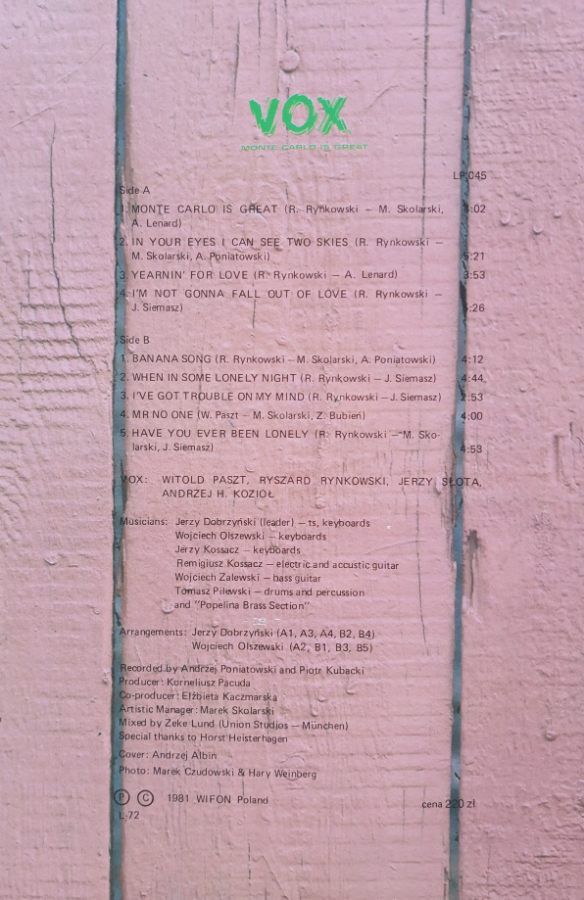 VOX
MONTE CARLO IS GREAT
LP 045
Side A
1. MONTE CARLO IS GREAT (R. Rynkowski – M. Skolarski, :02
A. Lenard)
2. IN YOUR EYES I CAN SEE TWO SKIES (R. Rynkowski –
M. Skolarski, A. Poniatowski) 5:21
3. YEARNIN' FOR LOVE (R. Rynkowski – A. Lenard) 3:53
4. I'M NOT GONNA FALL OUT OF LOVE (R. Rynkowski –
J. Siemasz) :26
Side B
1. BANANA SONG (R. Rynkowski – M. Skolarski, A. Poniatowski) 4:12
2. WHEN IN SOME LONELY NIGHT (R. Rynkowski – J. Siemasz) 4:44
3. I'VE GOT TROUBLE ON MY MIND (R. Rynkowski – J. Siemasz) 2:53
4. MR NO ONE (W. Paszt – M. Skolarski, Z. Bubień) 4:00
5. HAVE YOU EVER BEEN LONELY (R. Rynkowski – M. Sko-
larski, J. Siemasz) 4:53
VOX: WITOLD PASZT, RYSZARD RYNKOWSKI, JERZY SŁOTA,
ANDRZEJ H. KOZIOŁ
Musicians: Jerzy Dobrzyński (leader) – ts, keyboards
Wojciech Olszewski – keyboards
Jerzy Kossacz – keyboards
Remigiusz Kossacz – electric and accustic guitar
Wojciech Zalewski – bass guitar
Tomasz Pilewski – drums and percussion
and "Popelina Brass Section"
Arrangements: Jerzy Dobrzyński (A1, A3, A4, B2, B4)
Wojciech Olszewski (A2, B1, B3, B5)
Recorded by Andrzej Poniatowski and Piotr Kubacki
Producer: Korneliusz Pacuda
Co-producer: Elżbieta Kaczmarska
Artistic Manager: Marek Skolarski
Mixed by Zeke Lund (Union Studios – München)
Special thanks to Horst Heisterhagen
Cover: Andrzej Albin
Photo: Marek Czudowski & Hary Weinberg
Ⓟ © 1981 WIFON Poland cena 220 zł
L-72